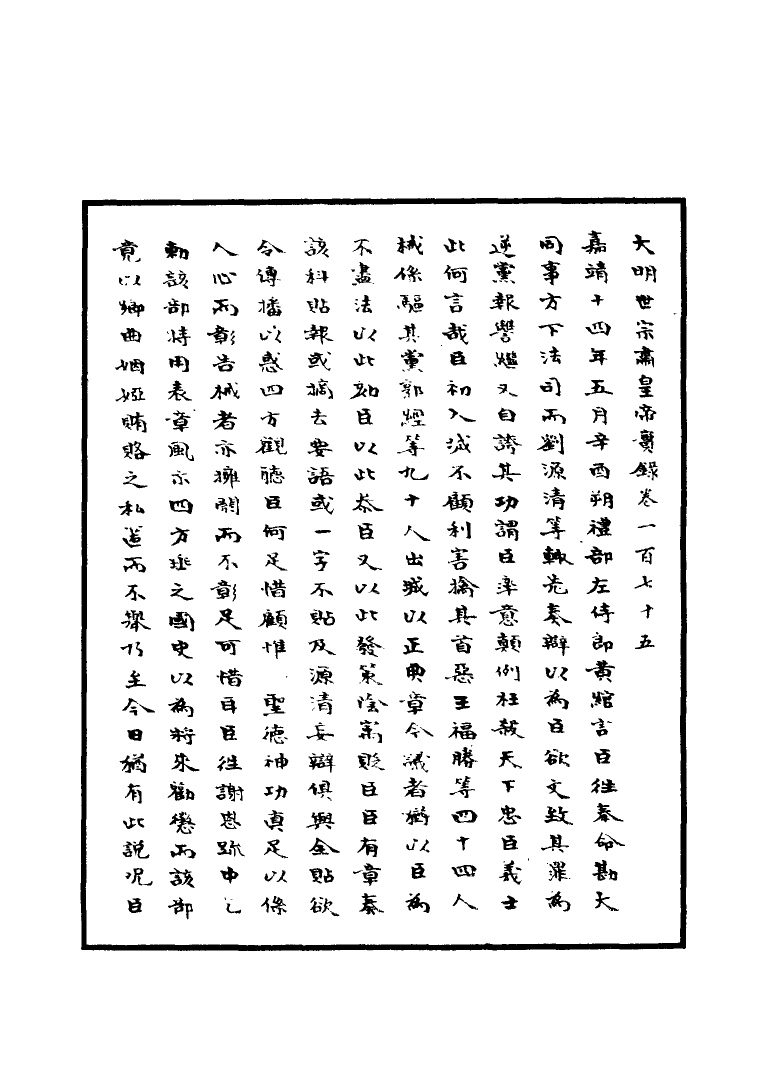 大明世宗肅皇帝實錄卷一百七十五
嘉靖十四年五月辛酉朔禮部左侍郎黃綰言臣往奉命勘大
同事方下法司而劉源清等輙先奏辯以為臣欲文致其罪為
逆黨報讐繼又自誇其功謂臣率意顛倒枉殺天下忠臣義士
此何言哉臣初入城不顧利害擒其首惡王福勝等四十四人
械係驅其黨郭經等九十人出城以正典章今議者猶以臣為
不盡法以此劾臣以此叅臣又以此發策陰寓貶臣臣有章奏
該科貼報或摘去要語或一字不貼及源清妄辯俱與全貼欲
令傳播以惑四方觀聽臣何足惜顧惟 聖德神功真足以係
人心而彰告械者亦擁閼而不彰足可惜耳臣徃謝恩疏中乞
勅該部特用表章風示四方垂之國史以為將來勸懲而該部
竟以鄉曲姻婭賄賂之私造而不舉乃至今日猶有此說况臣